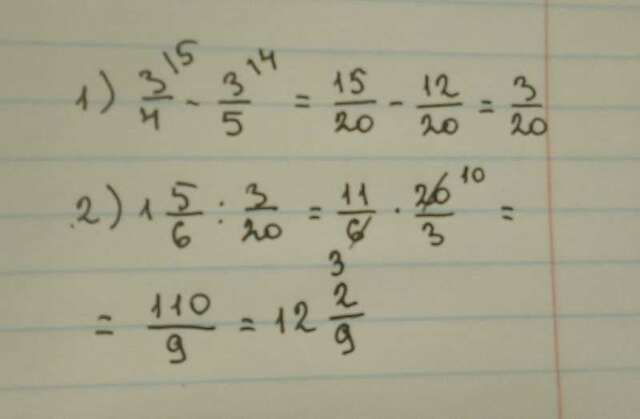 1) 3/4 ^15 - 3/5 ^14 = 15/20 - 12/20 = 3/20
2) 1 5/6 : 3/20 = 11/6 3 · 20/3 10 =
= 110/9 = 12 2/9